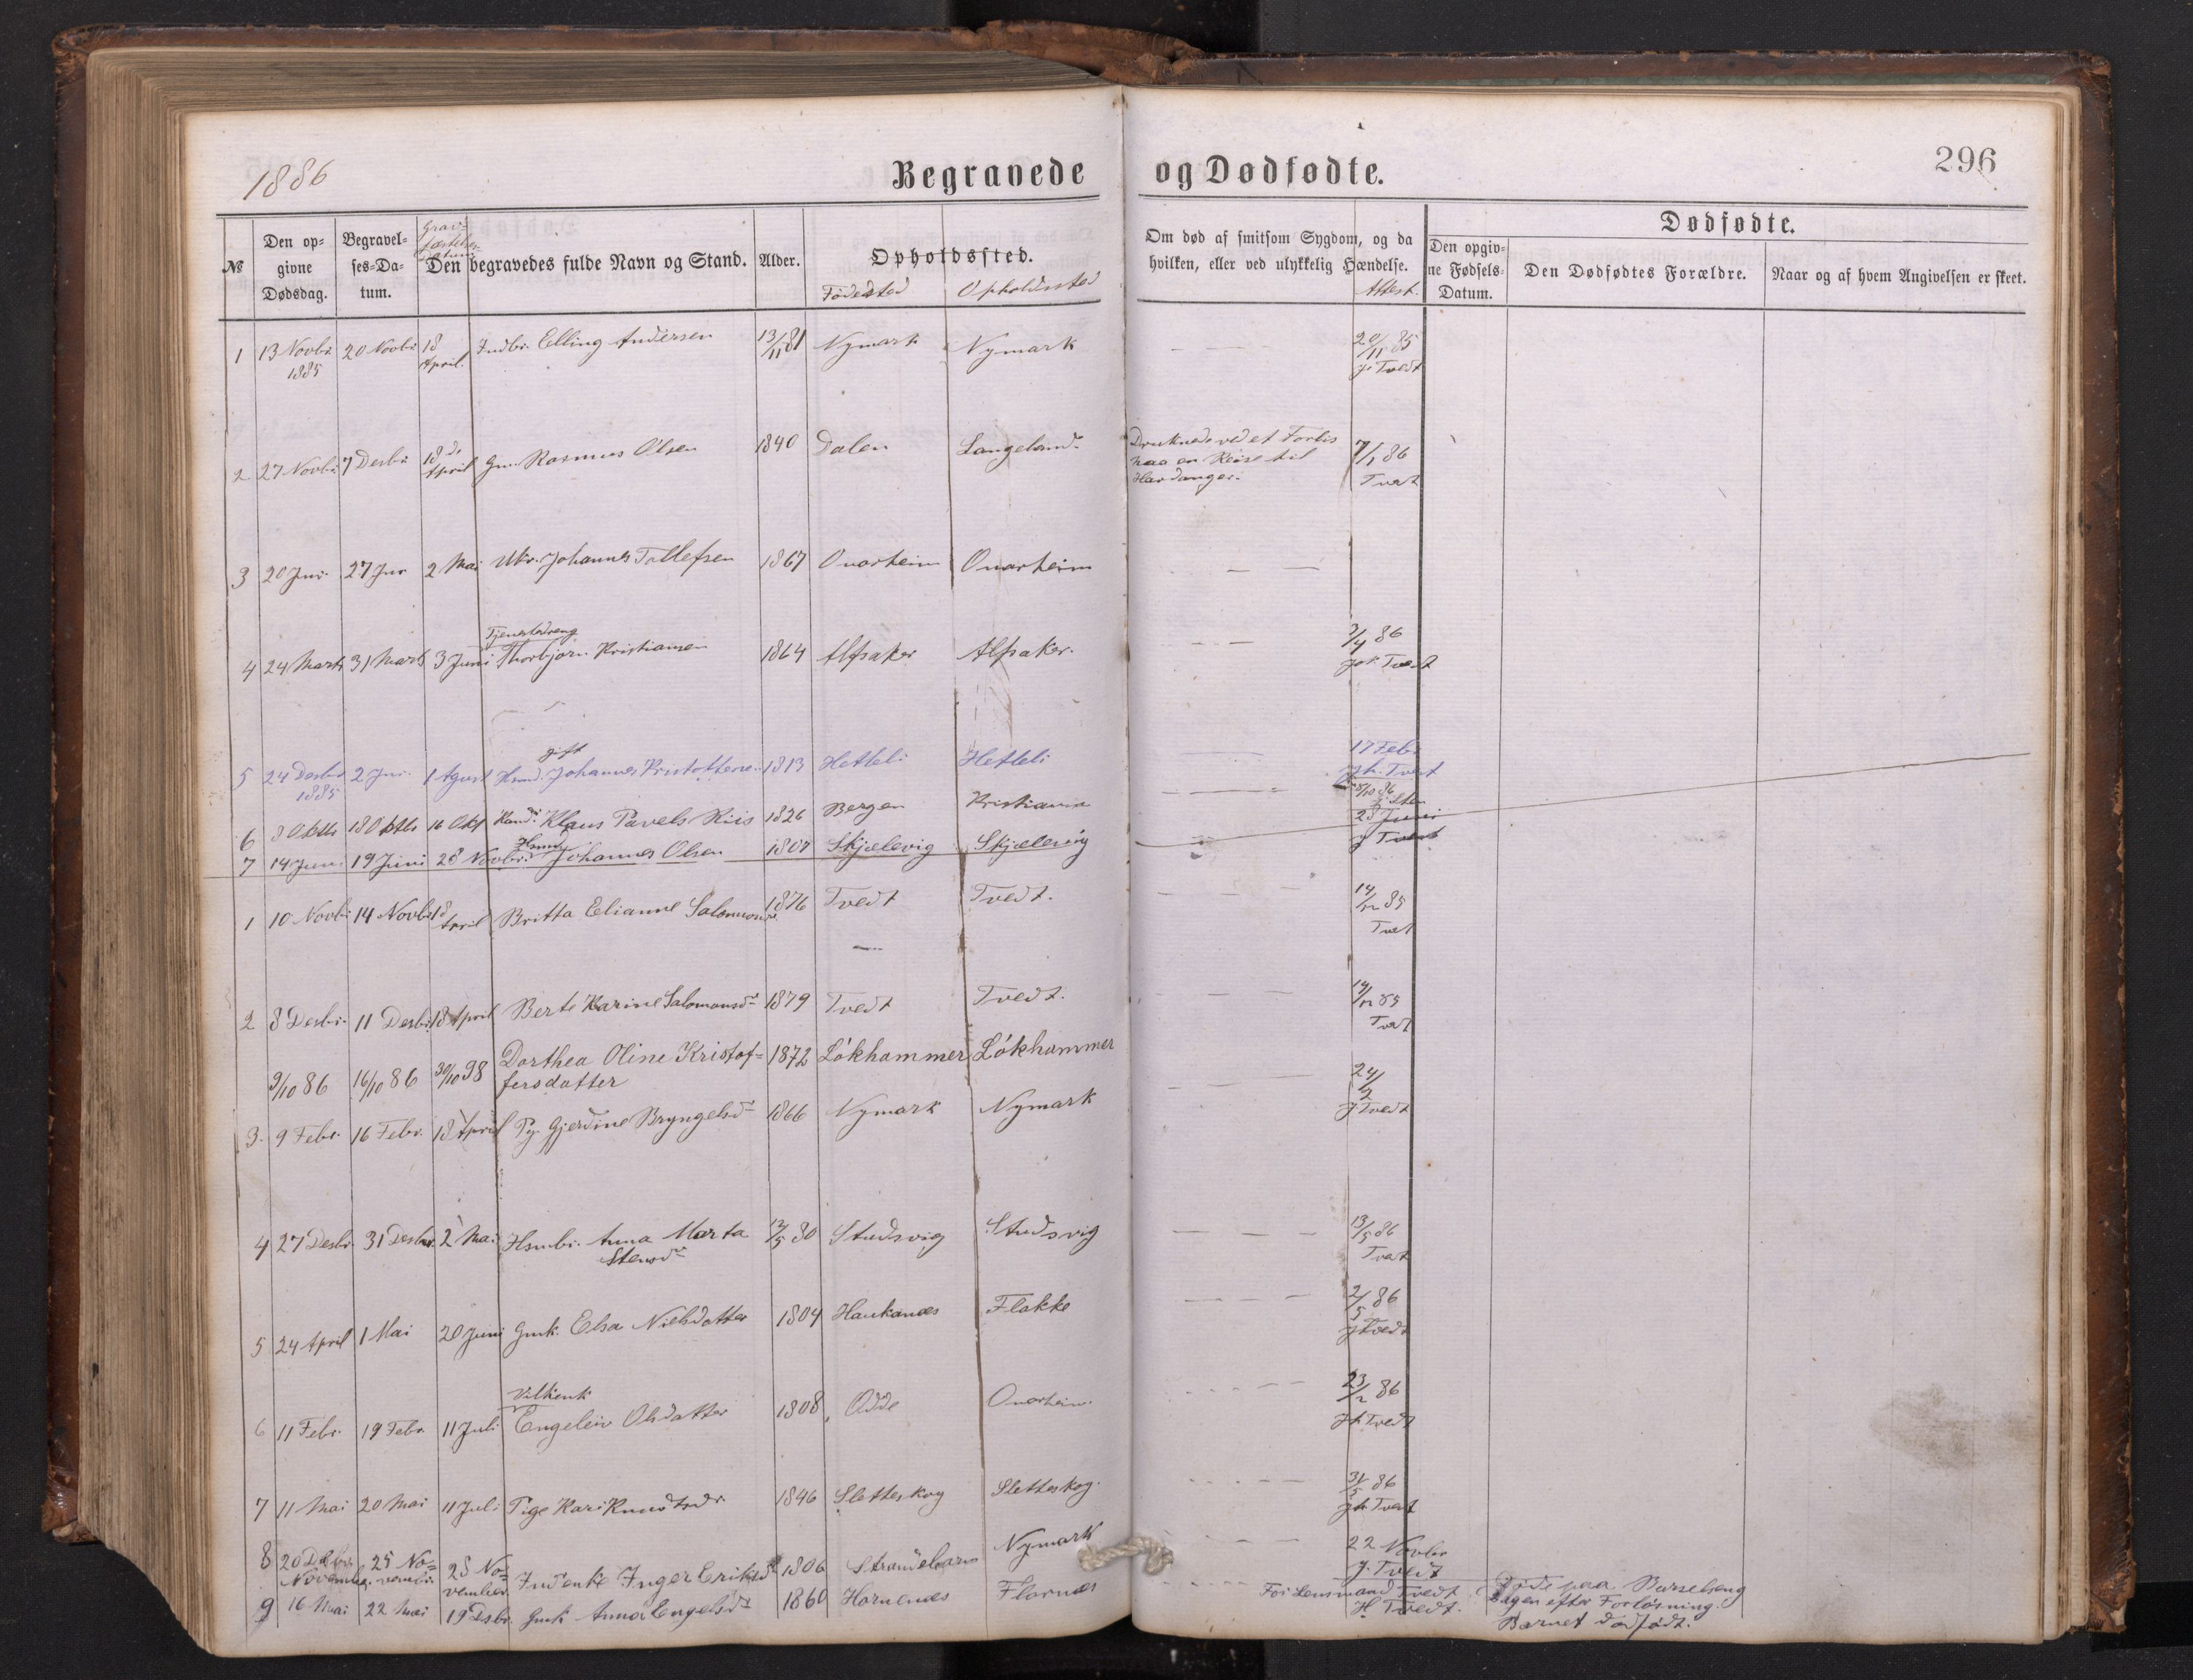 1886
Begravede og Dødfødte.
296
№
Den op=
givne
Dødsdag.
Begravel=
ses=Da=
tum.
Grav=
Den begravedes fulde Navn og Stand.
Alder.
Opholdssted.
Födested
Opholdssted
Om død af smitsom Sygdom, og da
hvilken, eller ved ulykkelig Hændelse.
Attest.
Dødfødte.
Den opgiv=
ne Fødsels=
Datum.
Den Dødfødtes Forældre.
Naar og af hvem Angivelsen er skeet.
1 13 Novbr 20 Novbr 18 Indbr. Elling Andersen 13/11 81 Nymark Nymark 20/11 85
1885 April J. Tvedt
2 27 Novbr 7 Desbr 18de Gm. Rasmus Olsen 1840 Dalen Langeland Druknede ved et Forlis 7/1 86
April paa en Reise til Tvedt
Hardanger.
3 20 Jnr. 27 Jnr 2 Mai Ukr. Johannes Tollefsen 1867 Onarheim Onarheim
Tjenestedreng
4 24 Marts 31 Marts 3 Juni Thorbjørn Kristiansen 1864 Alfsaker Alfsaker. 3/4 86
Joh. Tvedt
gift
5 24 Desbr 2 Jnr. 1 Agust Hsmd. Johannes Kristoffersen 1813 Hetleli Hetleli 17 Febr
1885 Joh. Tvedt
6 8 Oktb 18 Oktb 16 Okt Hand. Klaus Pavels Riis 1826 Bergen Kristiania
28 Juni
Hsmd
7 14 Juni 19 Juni 28 Novbr. Johannes Olsen 1807 Skjælevig Skjælevig J Tvedt
1 10 Novbr 14 Novbr 18 April Britta Elianne Salomonsd 1876 Tvedt Tvedt. 14/12 85
Tvedt
2 8 Desbr. 11 Desbr 18 April Berte Karine Salomonsdr 1879 Tvedt Tvedt. 14/12 85
Tvedt
9/10 86 16/10 86 30/10 98 Dorthea Oline Kristof= 1872 Lökhammer Lökhammer
fersdatter
3. 9 Febr. 16 Febr. 18 April Pg. Gjerdine Bryngelsdr 1866 Nymark Nymark 24/2
J Tvedt
4 27 Desbr. 31 Desbr. 2 Mai Hsmbr. Anna Marta 12/5 80 Studsvig Studsvig 13/5 86
Stensdr Tvedt
5 24 April 1 Mai 20 Juni Gmk. Elsa Nielsdatter 1804 Haukanæs Flakke 2/5 86
J Tvedt
Vilkenk
6 11 Febr. 19 Febr. 11 Juli Engeleiv Olsdatter 1808 Odde Onarheim. 23/2 86
Jh Tvedt
7 11 Mai 20 Mai 11 Juli Pige Kari Knudtsdr. 1846 Sletteskog Sletteskog. 31/5 86
Jh. Tvedt
8 20 25 No= 28 No= Indenke Inger Eriksdr 1806 Strandebarm Nymark 22 Novbr
November vembr. vember. J. Tvedt
9 16 Mai 22 Mai 19 Dsbr. Gmk Anna Engelsdr 1860 Hornenæs Flornæs For Lensmand Tvedt
H Tvedt.
Døde paa Barselseng
Dagen efter Forløsning.
Barnet dødfødt.